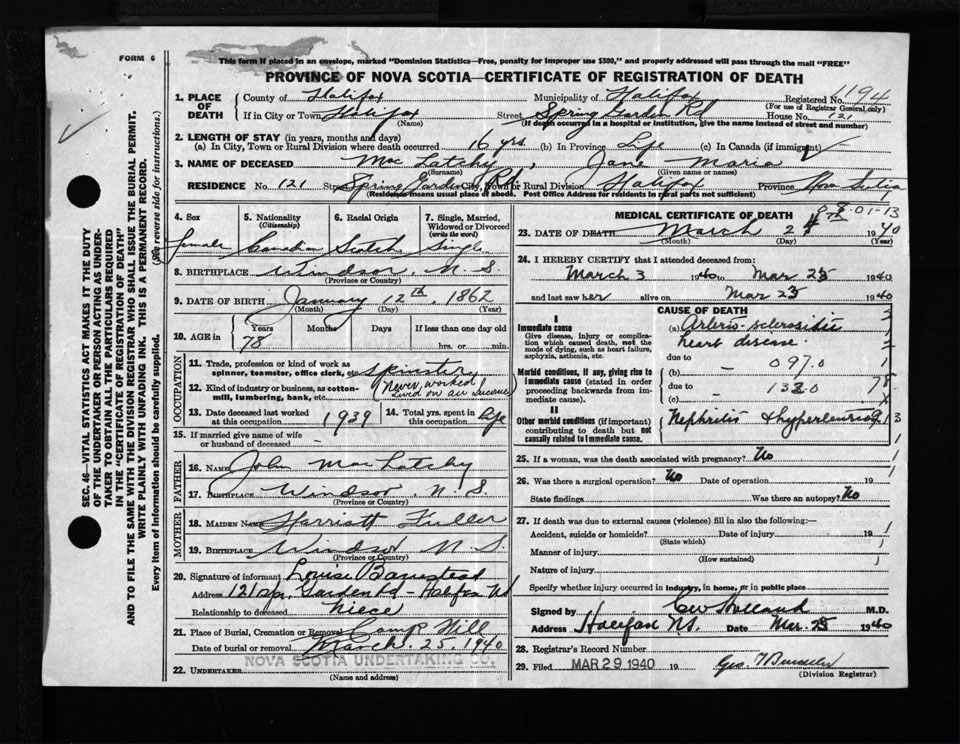 FORM 6
This form if placed in an envelope, marked "Dominion Statistics—Free, penalty for improper use $300," and properly addressed will pass through the mail "FREE"
PROVINCE OF NOVA SCOTIA—CERTIFICATE OF REGISTRATION OF DEATH
SEC. 46—VITAL STATISTICS ACT MAKES IT THE DUTY
OF THE UNDERTAKER OR PERSON ACTING AS UNDER-
TAKER TO OBTAIN ALL THE PARTICULARS REQUIRED
IN THE "CERTIFICATE OF REGISTRATION OF DEATH"
AND TO FILE THE SAME WITH THE DIVISION REGISTRAR WHO SHALL ISSUE THE BURIAL PERMIT.
WRITE PLAINLY WITH UNFADING INK. THIS IS A PERMANENT RECORD.
Every item of information should be carefully supplied. (See reverse side for instructions.)
1. PLACE OF DEATH County of Halifax Municipality of Halifax Registered No. 1194
(For use of Registrar General only)
If in City or Town Halifax Street Spring Garden Rd House No. 121
(Name) (If death occurred in a hospital or institution, give the name instead of street and number)
2. LENGTH OF STAY (in years, months and days)
(a) In City, Town or Rural Division where death occurred 16 yrs (b) In Province Life (c) In Canada (if immigrant)
3. NAME OF DECEASED Mac Latchy, Jane Maria
(Surname) (Given name or names)
RESIDENCE No. 121 Street Spring Garden Rd City, Town or Rural Division Halifax Province Nova Scotia
(Residence means usual place of abode. Post Office Address for residents in rural parts not sufficient)
4. Sex 5. Nationality 6. Racial Origin 7. Single, Married,
(Citizenship) Widowed or Divorced
(write the word)
Female Canadian Scotch Single
8. BIRTHPLACE Windsor, N.S.
(Province or Country)
9. DATE OF BIRTH January 12th, 1862
(Month) (Day) (Year)
10. AGE in Years Months Days If less than one day old
78 hrs. or min.
OCCUPATION
11. Trade, profession or kind of work as
spinner, teamster, office clerk, etc. Spinster
12. Kind of industry or business, as cotton-
mill, lumbering, bank, etc. (Never worked
lived on an Income)
13. Date deceased last worked
at this occupation 1939
14. Total yrs. spent in
this occupation Life
15. If married give name of wife
or husband of deceased –
FATHER
16. Name John Mac Latchy
17. Birthplace Windsor, N.S.
(Province or Country)
MOTHER
18. Maiden Name Harriott Fuller
19. Birthplace Windsor N.S.
(Province or Country)
20. Signature of informant Louise Barnstead
Address 121 Spr. Garden Rd - Halifax NS
Relationship to deceased Niece
21. Place of Burial, Cremation or Removal Camp Hill
Date of burial or removal March 25, 1940
22. UNDERTAKER NOVA SCOTIA UNDERTAKING CO.
(Name and address)
MEDICAL CERTIFICATE OF DEATH
8-01-13
23. DATE OF DEATH March 24th 1940
(Month) (Day) (Year)
24. I HEREBY CERTIFY that I attended deceased from:
March 3 1940 to Mar 23 1940
and last saw her alive on Mar 23 1940
CAUSE OF DEATH
I
Immediate cause
Give disease, injury or complica-
tion which caused death, not the
mode of dying, such as heart failure,
asphyxia, asthenia, etc.
(a) Arterio-sclerositic
heart disease.
due to
Morbid conditions, if any, giving rise to
immediate cause (stated in order
proceeding backwards from im-
mediate cause).
(b) – 097.0
due to – 132.0
(c)
II
Other morbid conditions (if important)
contributing to death but not
causally related to immediate cause.
Nephritis &
25. If a woman, was the death associated with pregnancy? No
26. Was there a surgical operation? No Date of operation 19
State findings Was there an autopsy? No
27. If death was due to external causes (violence) fill in also the following:—
Accident, suicide or homicide? Date of injury 19
(State which)
Manner of injury
(How sustained)
Nature of injury
Specify whether injury occurred in industry, in home, or in public place
Signed by M.D.
Address Halifax N.S. Date Mar. 25 1940
28. Registrar's Record Number
29. Filed MAR 29 1940 19
(Division Registrar)